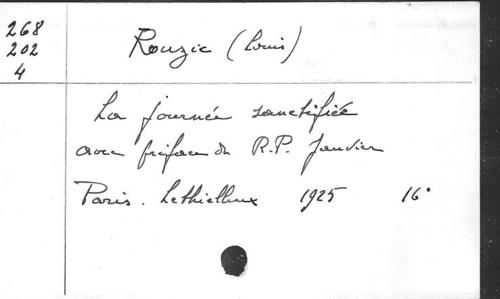 268
202
4
Rouzic (Louis)
La journée sanctifiée
avec préface du R.P. Janvier
Paris. Lethielleux 1925 16°